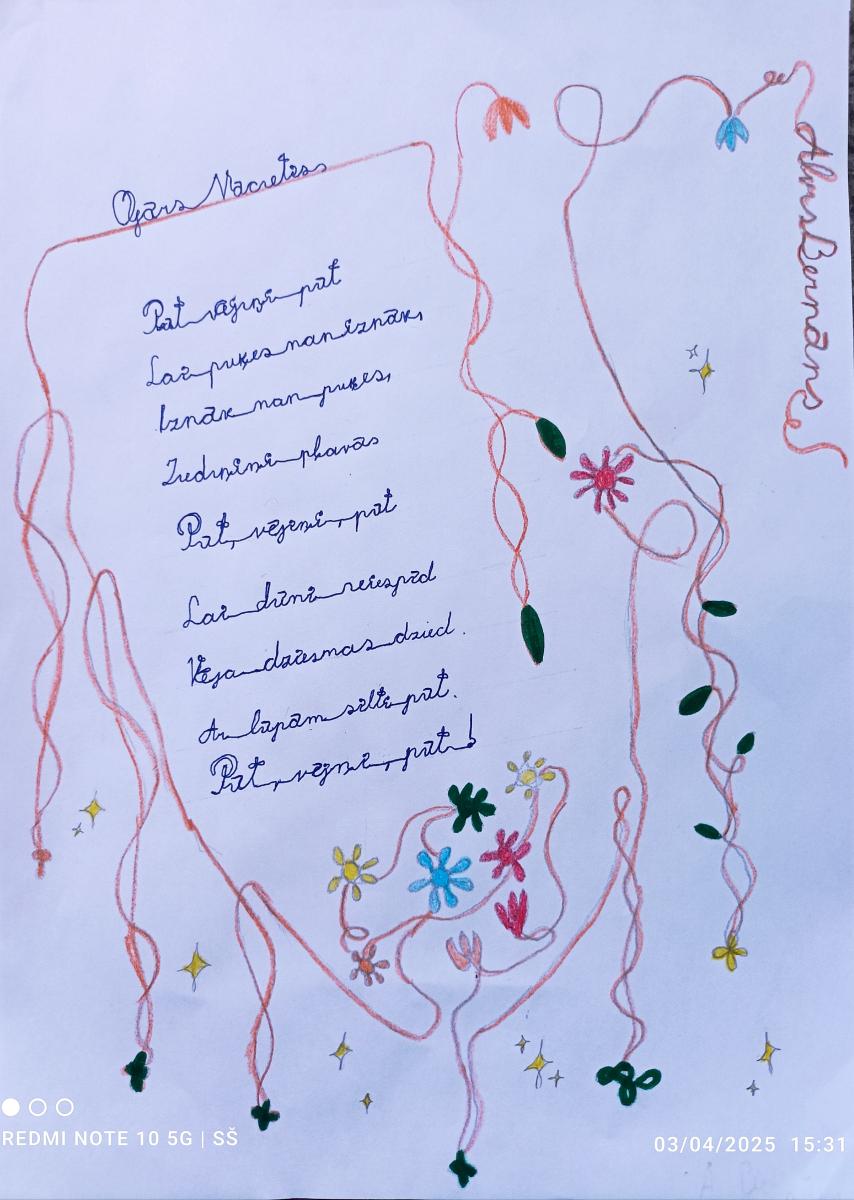 Ojārs Vācietis
Pūt vējiņi pūt
Lai puķes nan iznāk,
Iznāk nan puķes,
Pūt, vējiņi, pūt
Lai dūmi neiespīd
Vēja dziesmas dzied.
Ar lapām silti pūt.
Pūt, vējiņi, pūt!
Alvis Bernāns
REDMI NOTE 10 5G | SŠ
03/04/2025 15:31